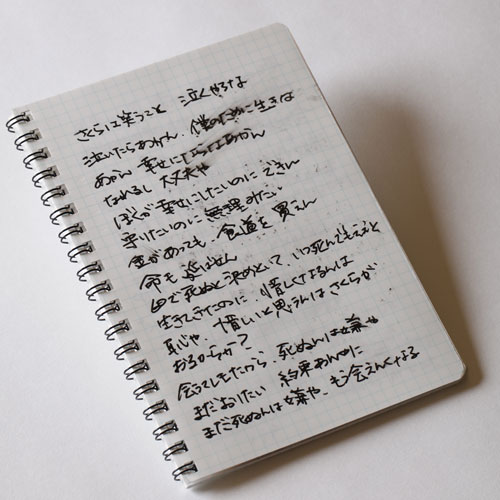 さくらは笑うこと 泣くやろな
泣いたらあかん、僕のために生きな
あかん 幸せにならなあかん
なれるし 大丈夫や
ぼくが 幸せにしたいのに できん
守りたいのに 無理みたい
金があっても、食道を買えん
命も
で死ぬと決めとって、いつ死んでもええと
生きてきたのに、惜しくなるんは
恥や、惜しいと思えんはさくらが
おるからか?
会うてしもたから、死ぬんは嫌や
まだおりたい 約束あんのに
まだ死ぬんは嫌や、もう会えんくなる